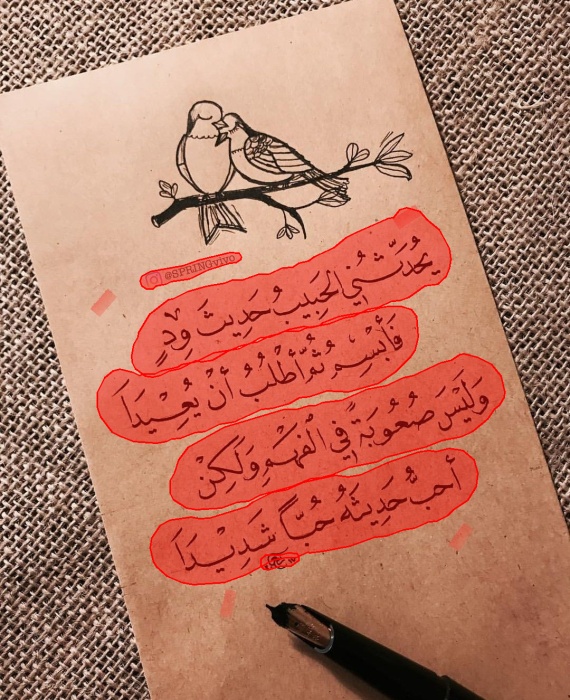 @SPRINGVIVO
يُحَدِّثُنِي الحَبِيبُ حَدِيثَ وِدٍ
فَأَبْسِمُ ثُمَّ أَطْلُبُ أَنْ يُعِيْدَاَ
وَلَيْسَ صُعُوبَةً فِي الْفَهْمِ وَلَكِنْ
أُحبُّ حَدِيثَهُ حُبَّاً شَدِيْدَاَ